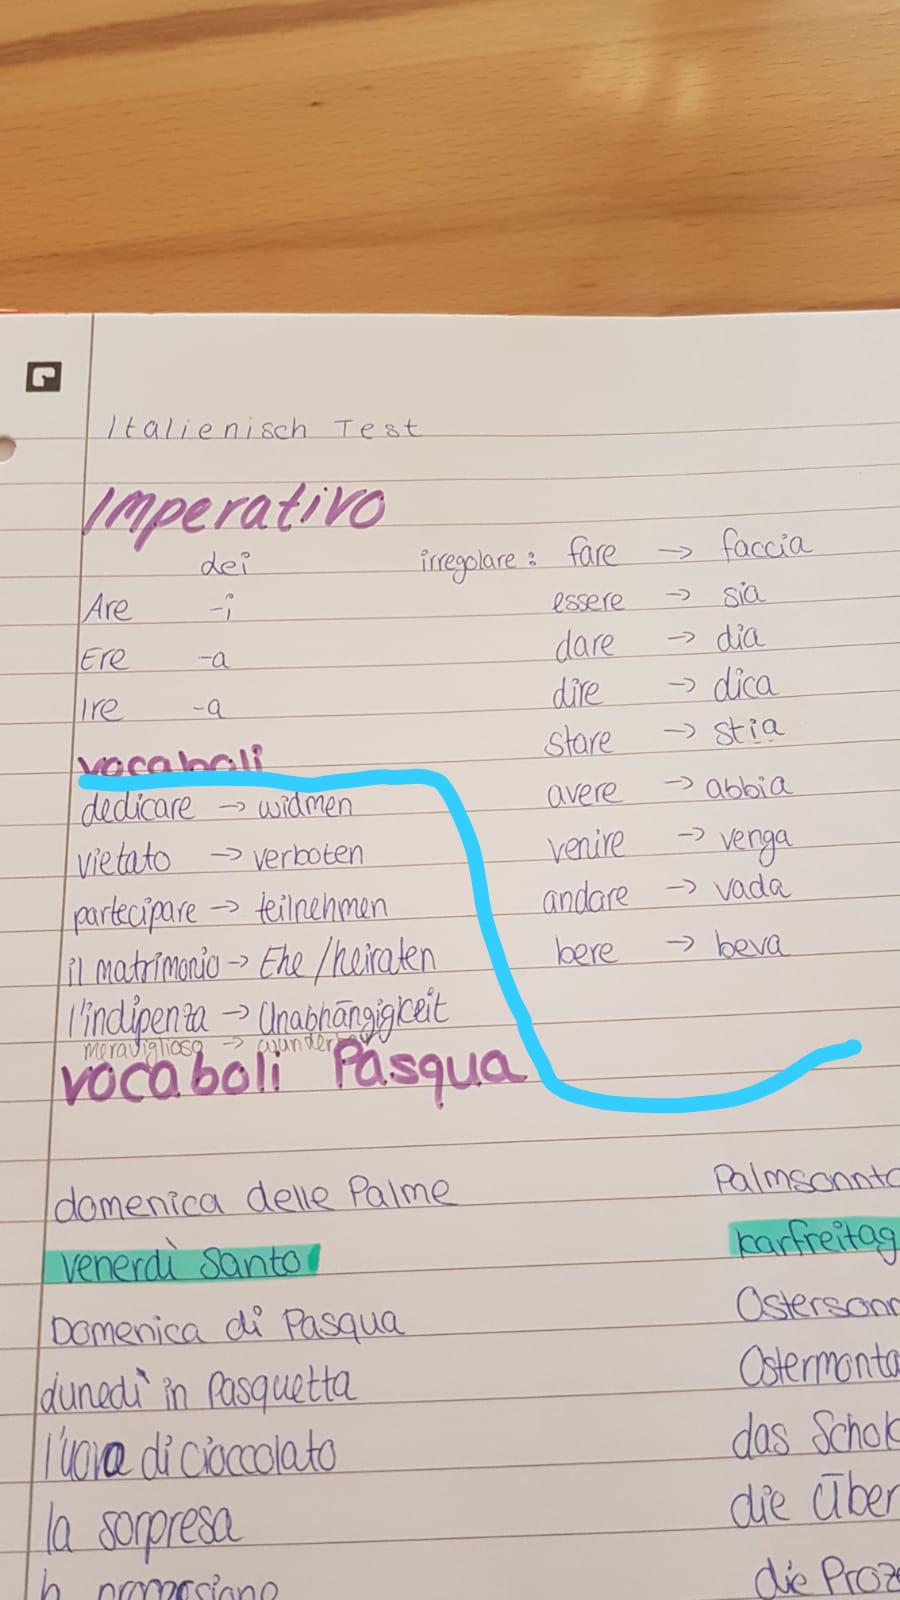 Italienisch Test
Imperativo
dei
Are -i
Ere -a
Ire -a
irregolare: fare → faccia
essere → sia
dare → dia
dire → dica
stare → stia
avere → abbia
venire → venga
andare → vada
bere → beva
vocaboli
dedicare → widmen
vietato → verboten
partecipare → teilnehmen
il matrimonio → Ehe / heiraten
l'indipenza → Unabhängigkeit
meraviglioso → wunderbar
vocaboli Pasqua
domenica delle Palme Palmsonnta
venerdì Santo karfreitag
Domenica di Pasqua Osterson
dunedì in Pasquetta Ostermonta
l'uova di cioccolato das Schok
la sorpresa die Über
die Proze